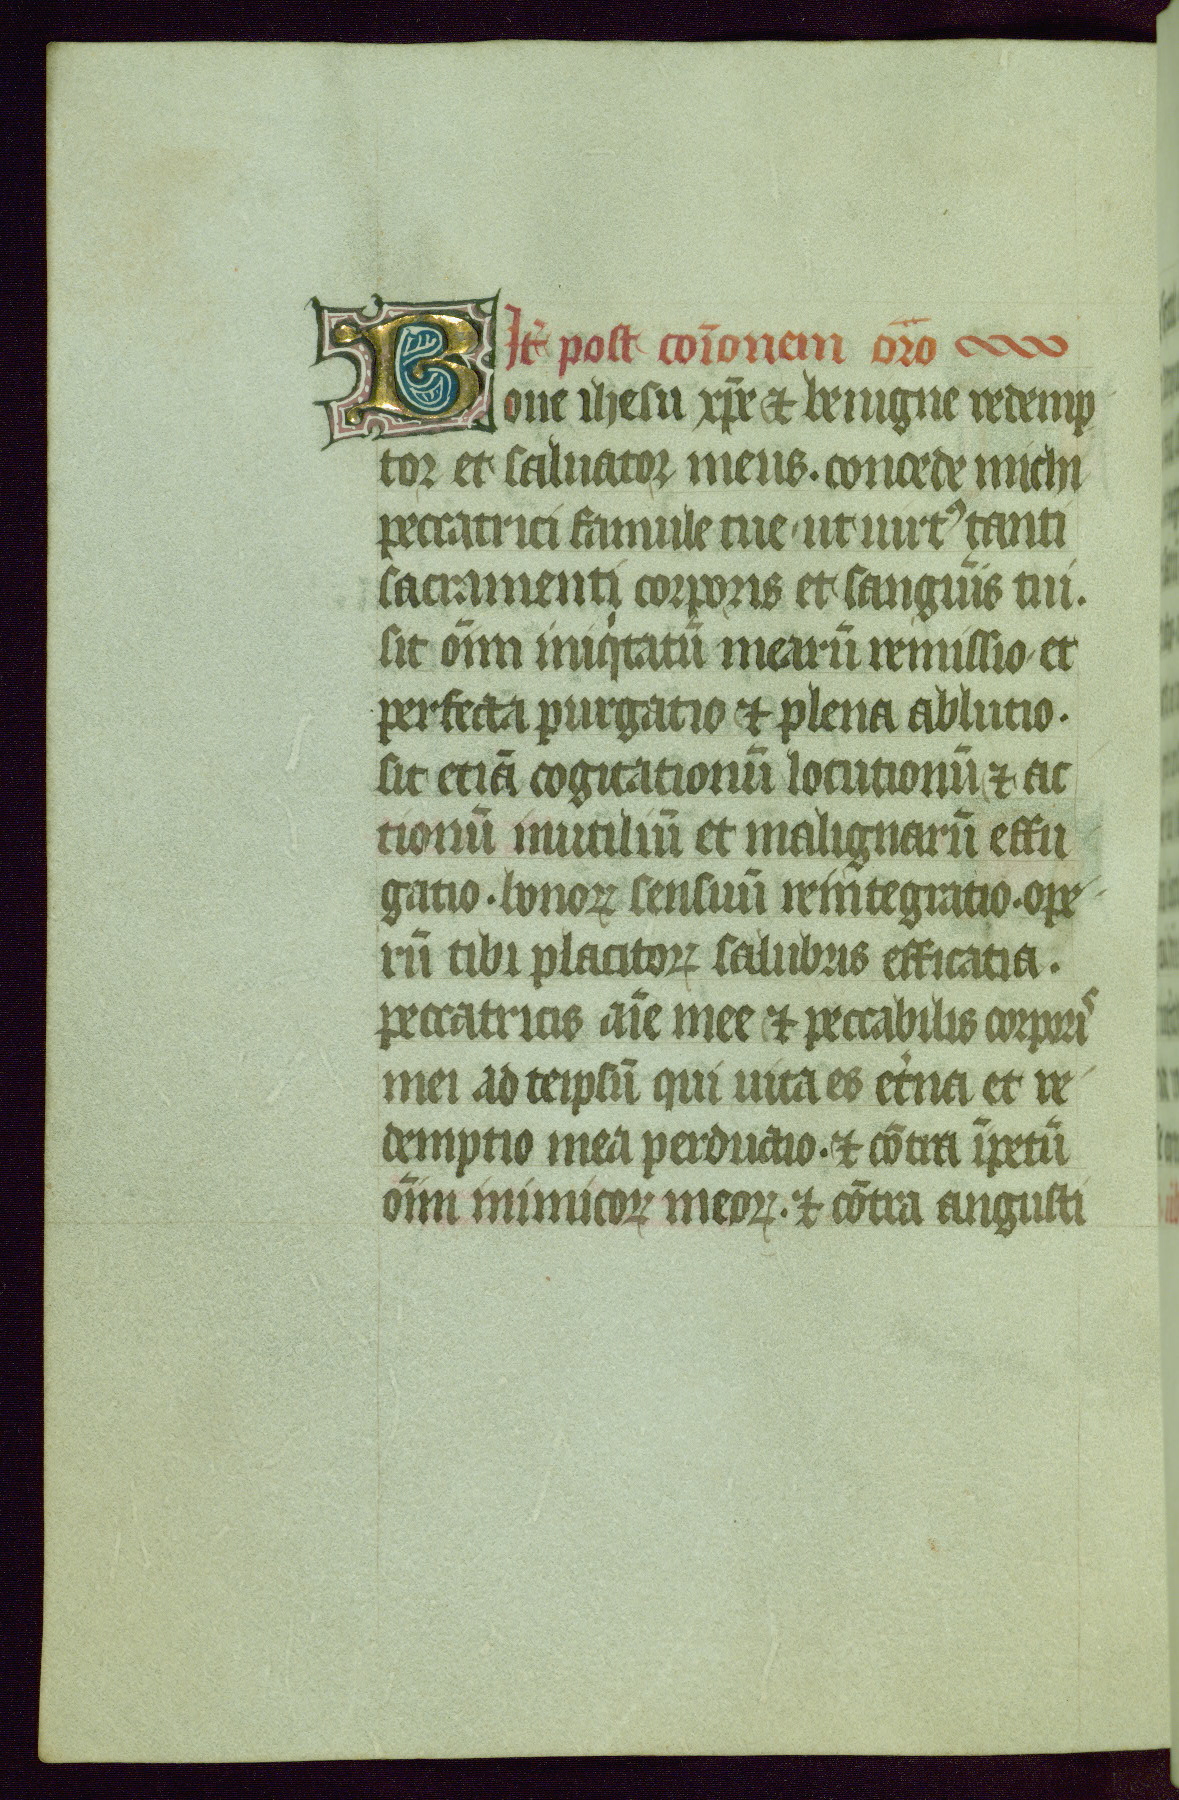 It̄ post cōionem ōro
Bone ihesu xp̄e ⁊ benigne redemp
tor et saluator meus. concede michi
peccatrici famule tue ut uirtꝰ tanti
sacramenti corporis et sangūis tui.
sit oīm iniqͥtatū mearū remissio et
perfecta purgatio ⁊ plena ablutio.
sit etiā cogitationū locutionū ⁊ ac
tionū inutiliū et malignarū effu
gatio. bonoꝝ sensuū reintegratio. ope
rū tibi placitoꝝ salubris efficatia.
peccatricis aīe mee ⁊ peccabilis corporis
mei ad teipsū qui uita es et̾na et re
demptio mea perductio. ⁊ cōtra īpetū
oīm inimicoꝝ meoꝝ. ⁊ cōtra angusti